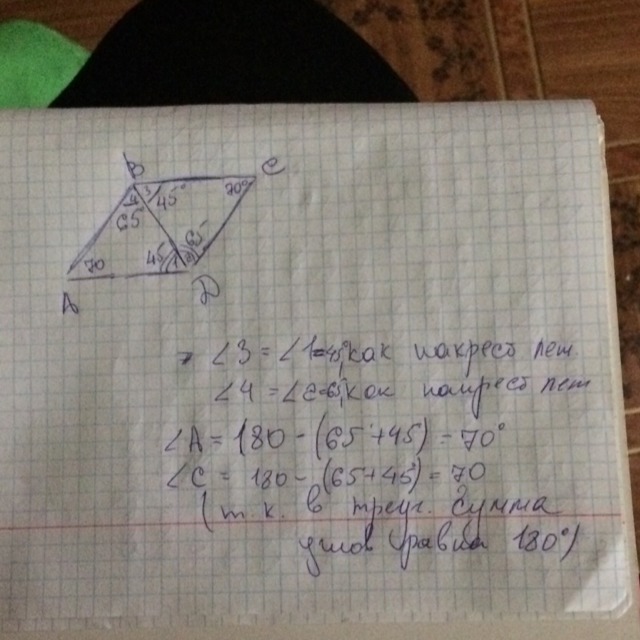 B C
4 3 45° 70°
65
70 45 1 2 65
A D
∠3 = ∠1=45°, как накрест леж
∠4 = ∠2=65°, как накрест леж
∠A = 180 - (65+45) = 70°
∠C = 180 - (65+45) = 70
(т.к. в треуг. сумма
углов равна 180°)